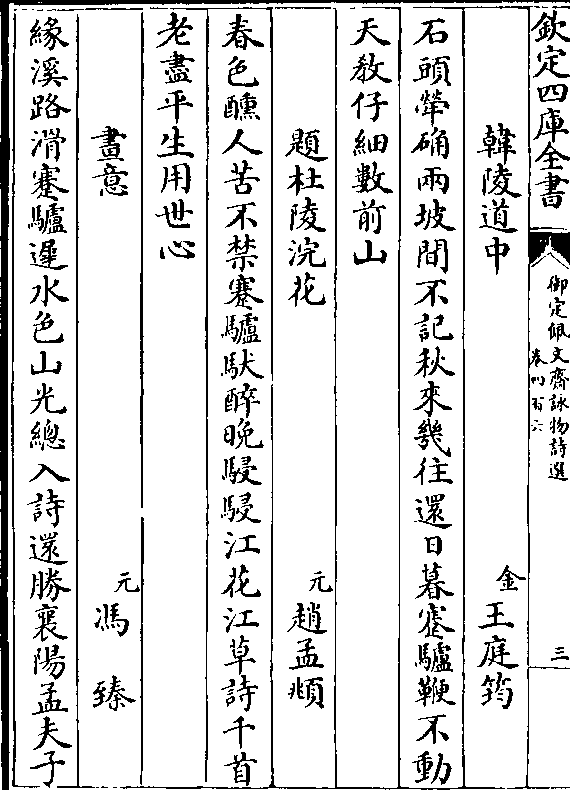 欽定四庫全書
御定佩文齋詠物詩選
卷四百六
三
韓陵道中
金 王庭筠
石頭犖确兩坡間不記秋來幾往還日暮蹇驢鞭不動
天教仔細數前山
題杜陵浣花
元 趙孟頫
春色醺人苦不禁蹇驢馱醉晚駸駸江花江草詩千首
老盡平生用世心
畫意
元 馮臻
緣溪路滑蹇驢遲水色山光總入詩還勝襄陽孟夫子